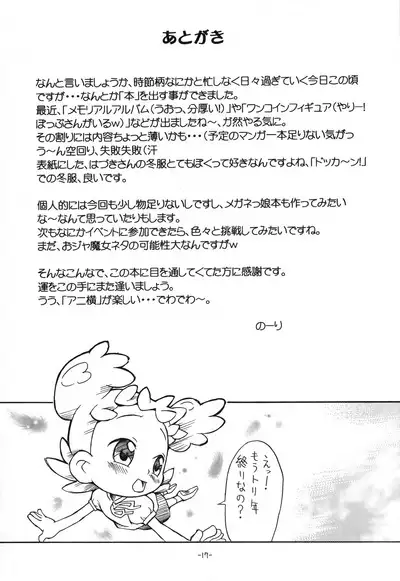 あとがき
なんと言いましょうか、時節柄なにかと忙しなく日々過ぎていく今日この頃
ですが・・・なんとか「本」を出す事ができました。
最近、「メモリアルアルバム(うおっ、分厚い!)」や「ワンコインフィギュア(やりー!
ぽっぷさんがいるw)」などが出ましたね〜、が然やる気に。
その割りには内容ちょっと薄いかも・・・(予定のマンガ一本足りない気がっ
う〜ん空回り、失敗失敗(汗
表紙にした、はづきさんの冬服とてもぼくって好きなんですよね、「ドッカ〜ン!」
での冬服、良いです。
個人的には今回も少し物足りないしですし、メガネっ娘本も作ってみたい
な〜なんて思っていたりもします。
次もなにかイベントに参加できたら、色々と挑戦してみたいですね。
まだ、おジャ魔女ネタの可能性大なんですがw
そんなこんなで、この本に目を通してくてた方に感謝です。
運をこの手にまた逢いましょう。
うう、「アニ横」が楽しい・・・でわでわ〜。
のーり
えっ!
もうトリ年
終りなの?
-17-